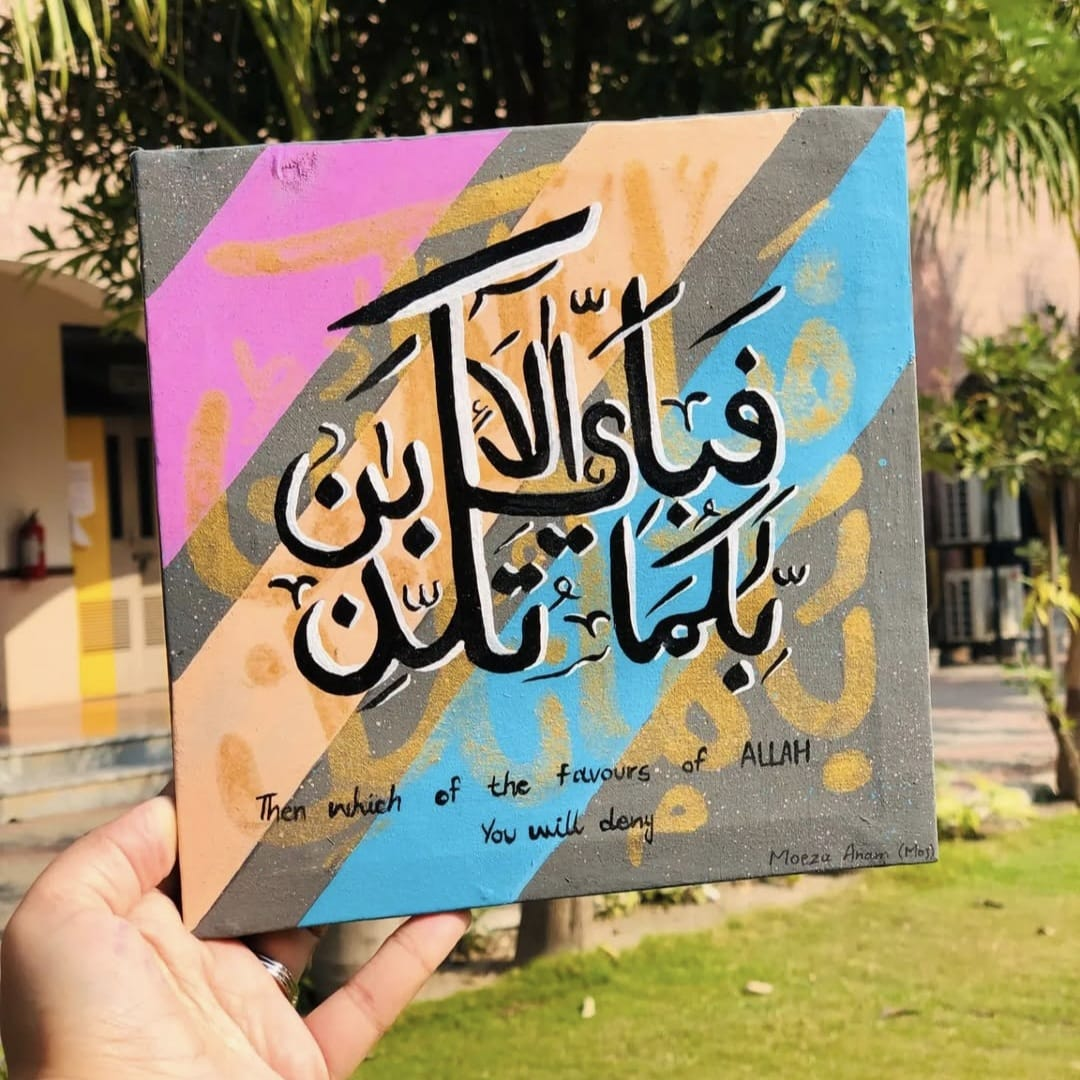 فَبِأَيِّ آلَاءِ
رَبِّكُمَا تُكَذِّبَانِ
Then which of the favours of ALLAH
You will deny
Moeza Anam (Moz)